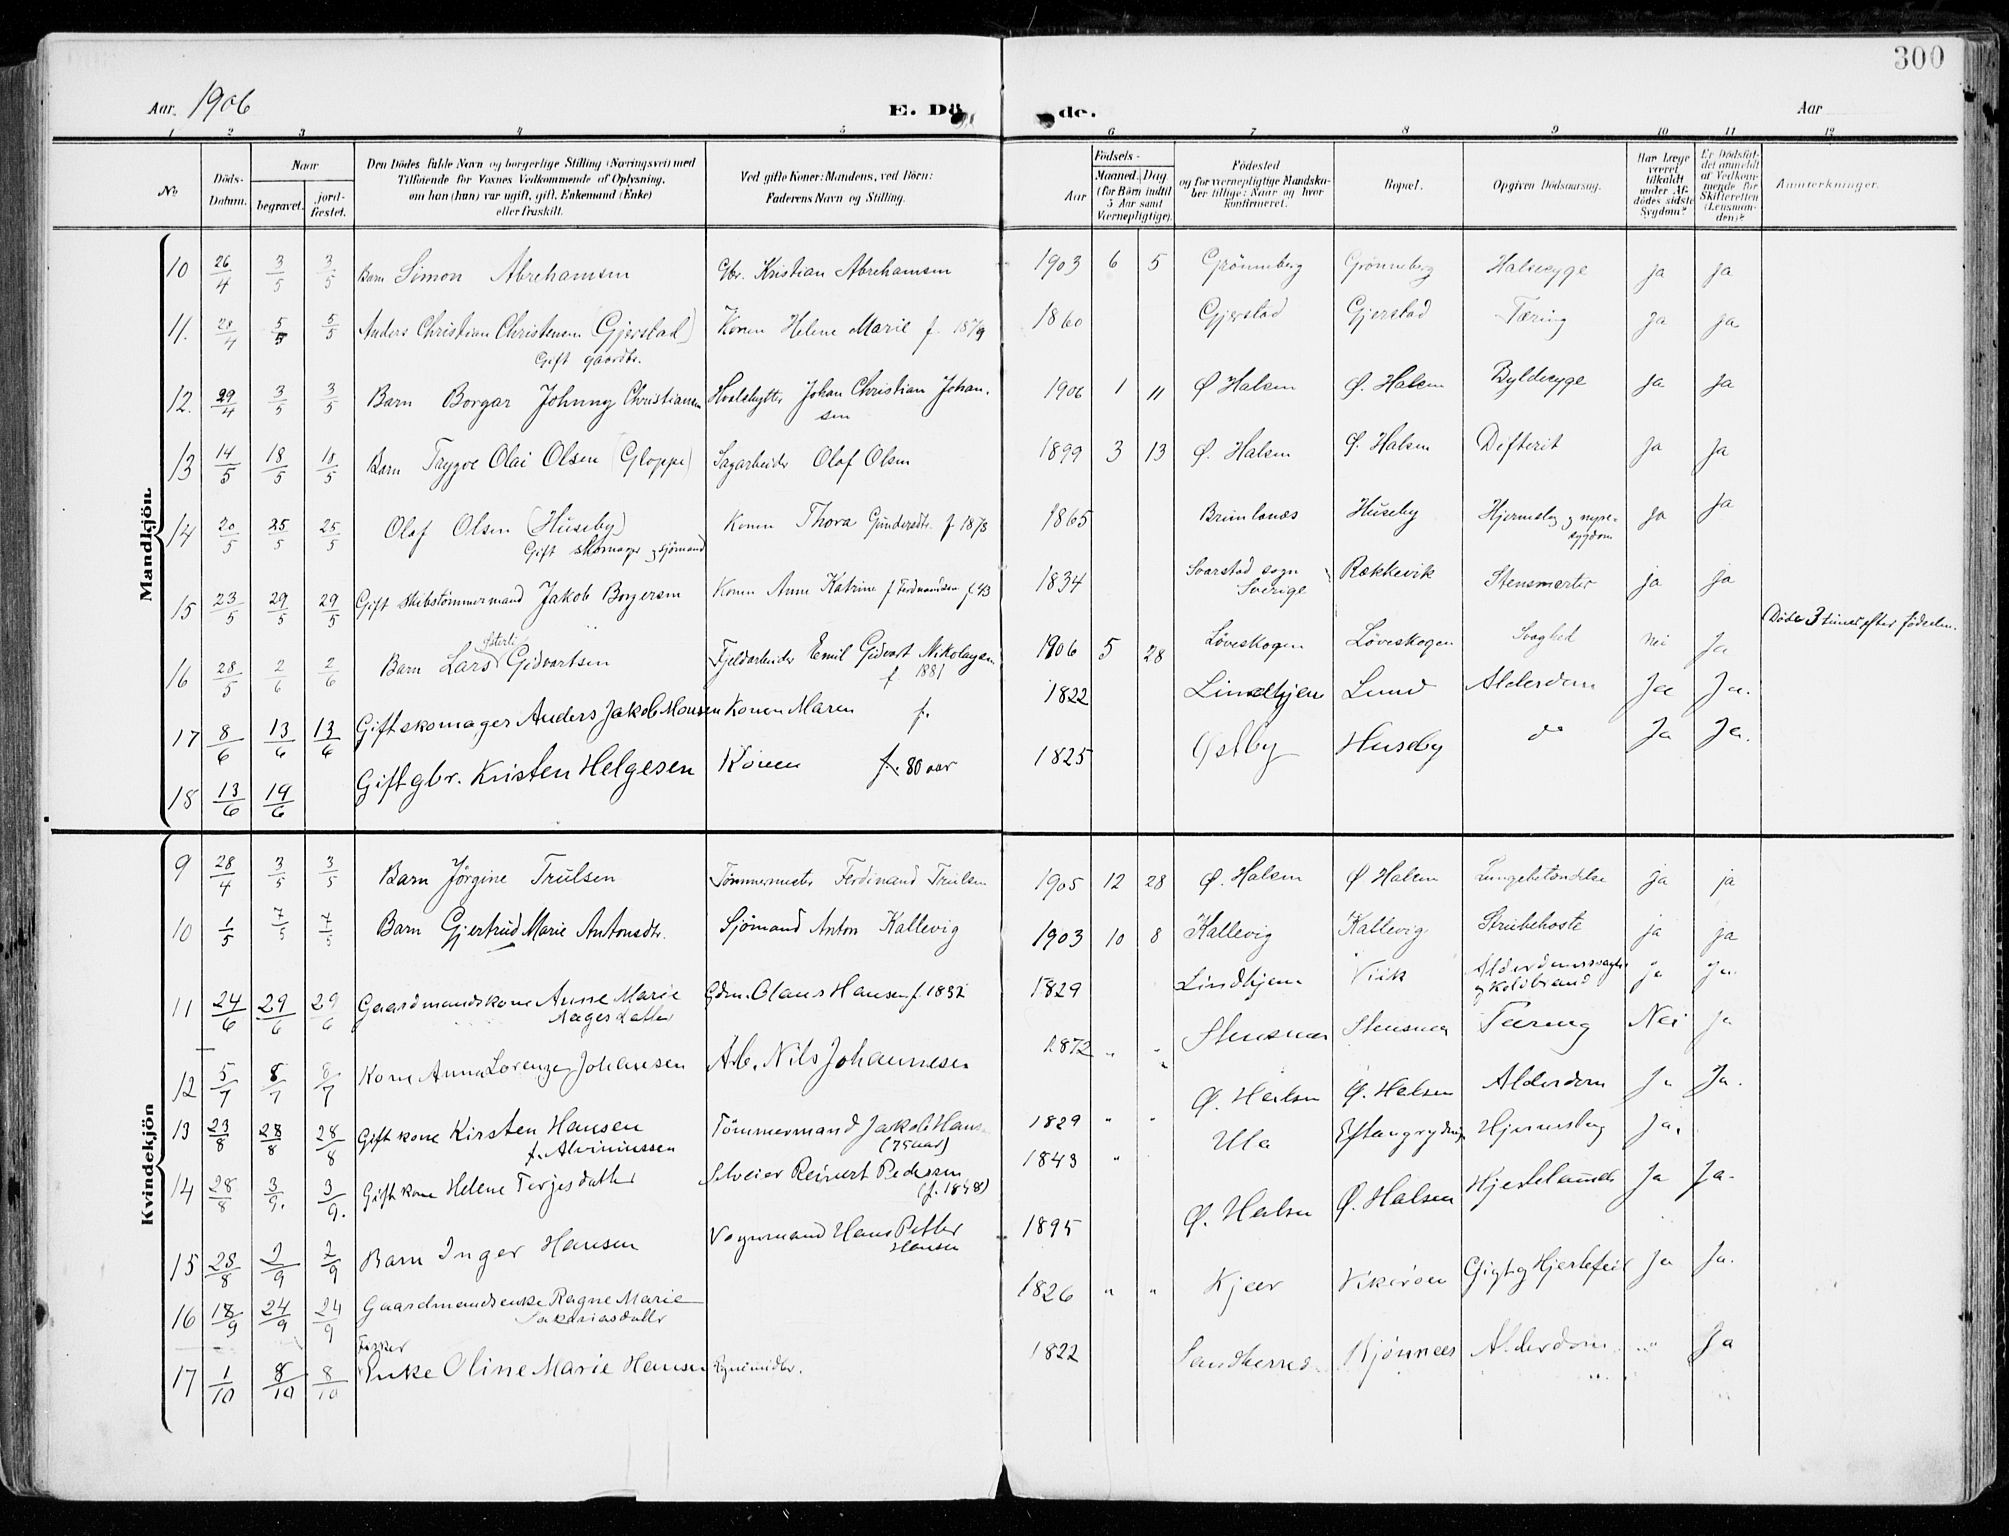 300
Aar. 1906 E. Dö de. Aar
1 2 3 4 5 6 7 8 9 10 11 12
No. Döds-Datum. Naar begravet. jordfæstet. Den Dödes fulde Navn og borgerlige Stilling (Næringsvei) med Tilföiende for Voxnes Vedkommende af Oplysning, om han (hun) var ugift, gift, Enkemand (Enke) eller fraskilt. Ved gifte Koner: Mandens, ved Börn: Faderens Navn og Stilling. Aar Födsels- Maaned. Dag (for Börn indtil 5 Aar samt Værnepligtige). Födested og for værnepligtige Mandskaber tillige: Naar og hvor konfirmeret. Bopæl. Opgiven Dödsaarsag. Har Læge været tilkaldt under Afdödes sidste Sygdom? Er Dödsfaldet anmeldt af Vedkommende for Skifteretten (Lensmanden)? Anmærkninger.
Mandkjön.
10 26/4 3/5 3/5 Barn Simon Abrehamsen Gbr. Kristian Abrehamsen 1903 6 5 Grönneberg Grönneberg Halsesyge ja ja
11. 28/4 5/5 5/5 Anders Christian Christensen (Gjerstad) Konen Helene Marie f. 1879 1860 Gjerstad Gjerstad Tæring ja ja
Gift gaardbr.
12. 29/4 3/5 3/5 Barn Borgar Johnny Christiansen Hvalskytter Johan Christian Johan- 1906 1 11 Ø Halsen Ø. Halsen Byldesyge ja ja
sen
13 14/5 18/5 18/5 Barn Trygve Olai Olsen (Gloppe) Sagarbeider Olaf Olsen 1899 3 13 Ø. Halsen Ø. Halsen Difterit ja ja
14 20/5 25/5 25/5 Olaf Olsen (Huseby) Konen Thora Gundersdtr. f 1873 1865 Brunlanæs Huseby Hjerneslag og nyre- ja ja
Gift skomager og sjömand sygdom
15 23/5 29/5 29/5 Gift skibstömmermand Jakob Borgersen Konen Anne Katrine f Ferdinandsen f. 43 1834 Svarstad sogn Sverige Rækkevik Stensmerter ja ja
16 28/5 2/6 2/6 Barn Lars Gidvartsen Fjeldarbeider Emil Gidvart Nikolaysen 1906 5 28 Löveskogen Löveskogen Svaghed nei ja Döde 3 timer efter födselen.
f 1881
17 8/6 13/6 13/6 Gift skomager Anders Jakob Monsen Konen Maren f. 1822 Lindhjem Lund Alderdom Ja Ja.
18 13/6 19/6 Gift gbr. Kristen Helgesen Konen f. 80 aar 1825 Østby Huseby do Ja Ja.
Kvindekjön
9 28/4 3/5 3/5 Barn Jörgine Trulsen Tömmermester Ferdinand Trulsen 1905 12 28 Ø. Halsen Ø Halsen Lungebetændelse ja ja
10 1/5 7/5 7/5 Barn Gjertrud Marie Antonsdtr. Sjömand Anton Kallevig 1903 10 8 Kallevig Kallevig Strubehoste ja ja
11 24/6 29/6 29/6 Gaardmandskone Anne Marie Gdm. Olaus Hansen f. 1832 1829 Lindhjem Viik Alderdomssvaghed ja ja.
Aagesdatter og Koldbrand
12 5/7 8/7 8/7 Kone Anna Lorenze Johansen Arb. Nils Johannesen 1872 " " Stensnæs Stensnæs Tæring Nei ja
13 23/8 28/8 28/8 Gift kone Kirsten Hansen Tömmermand Jakob Hans- 1829 " " Ø. Halsen Ø. Halsen Alderdom Ja Ja.
f. Alviniussen (75 aar)
14 28/8 3/9. 3/9. Gift kone Helene Terjesdatter Selveier Reinert Pedersen 1843 " Ula Eftangrydning Hjerneslag Ja.
(f. 1848)
15 28/8 2/9 2/9 Barn Inger Hansen Vognmand Hans Petter 1895 Ø. Halsen Ø. Halsen Ja Ja.
Hansen
16 18/9 24/9 24/9 Gaardmandsenke Ragne Marie 1826 " " Kjær Vikeröen Gigt og Hjertefeil Ja Ja.
Sakariasdatter
17 1/10 8/10 8/10 Enke Oline Marie Hansen 1822 Sandherred Bjönnæs Alderdom " Ja